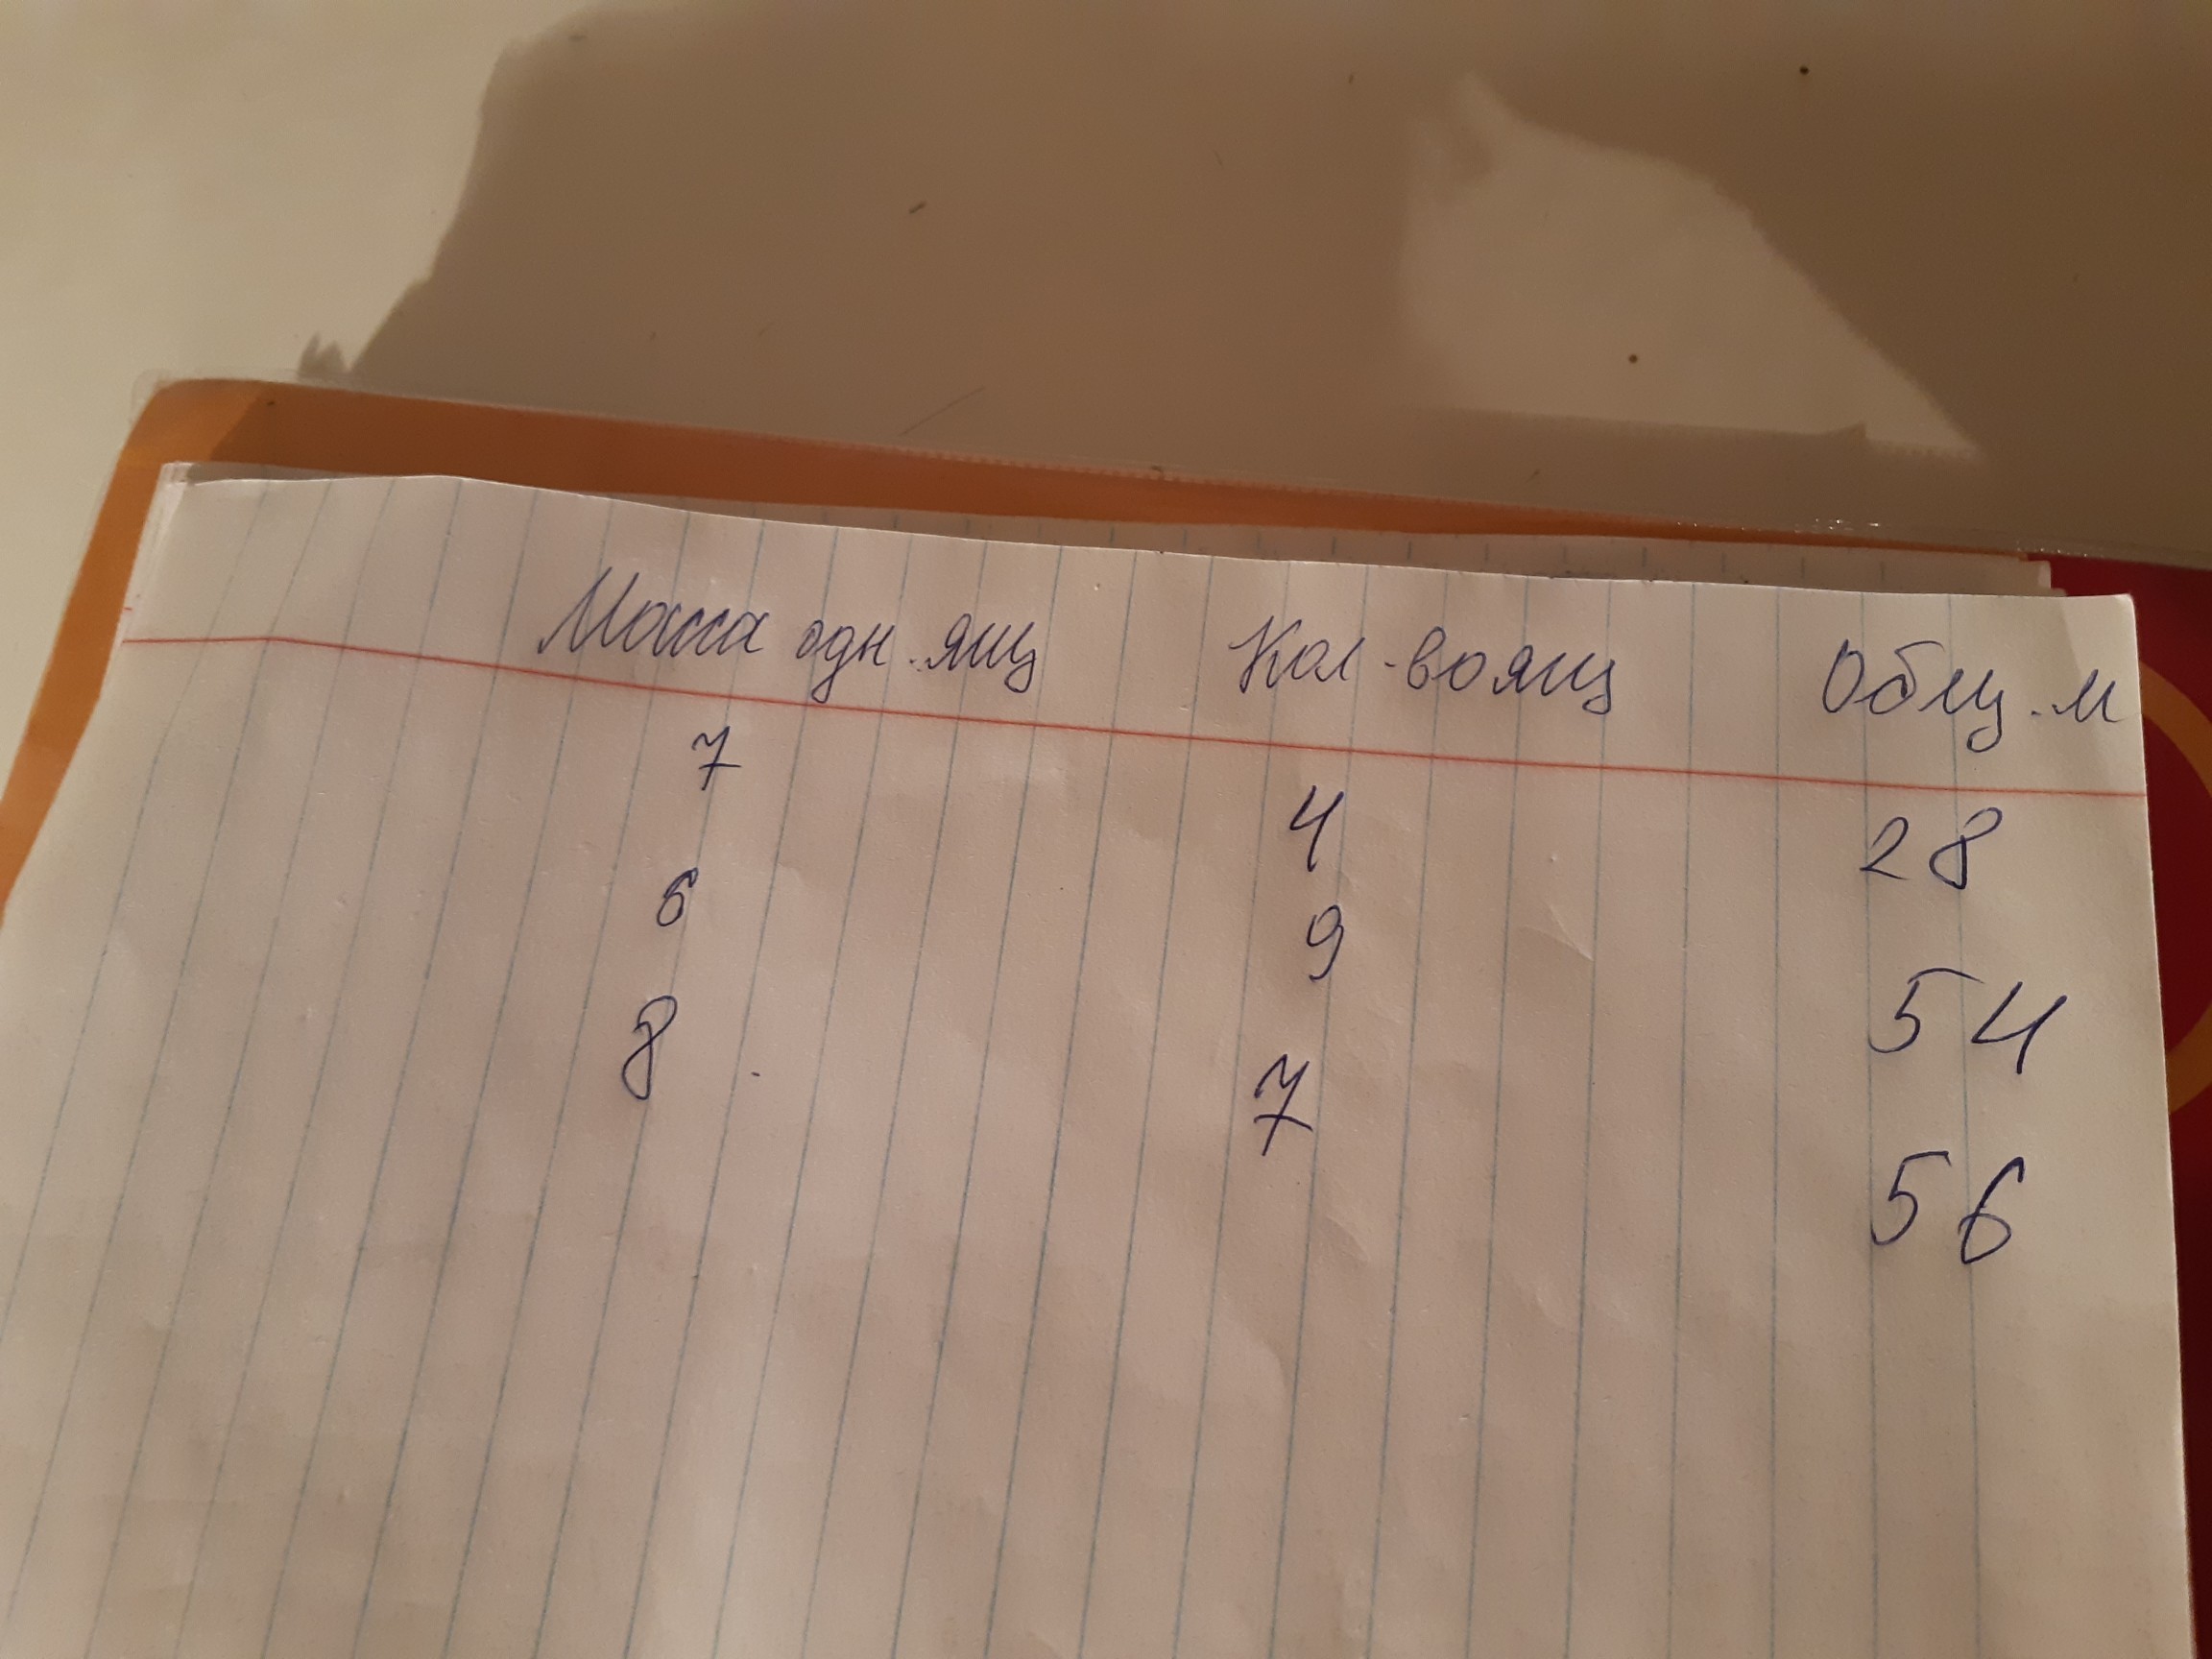 Масса одн. ящ Кол-во ящ Общ. м
7 4 28
6 9 54
8 7 56